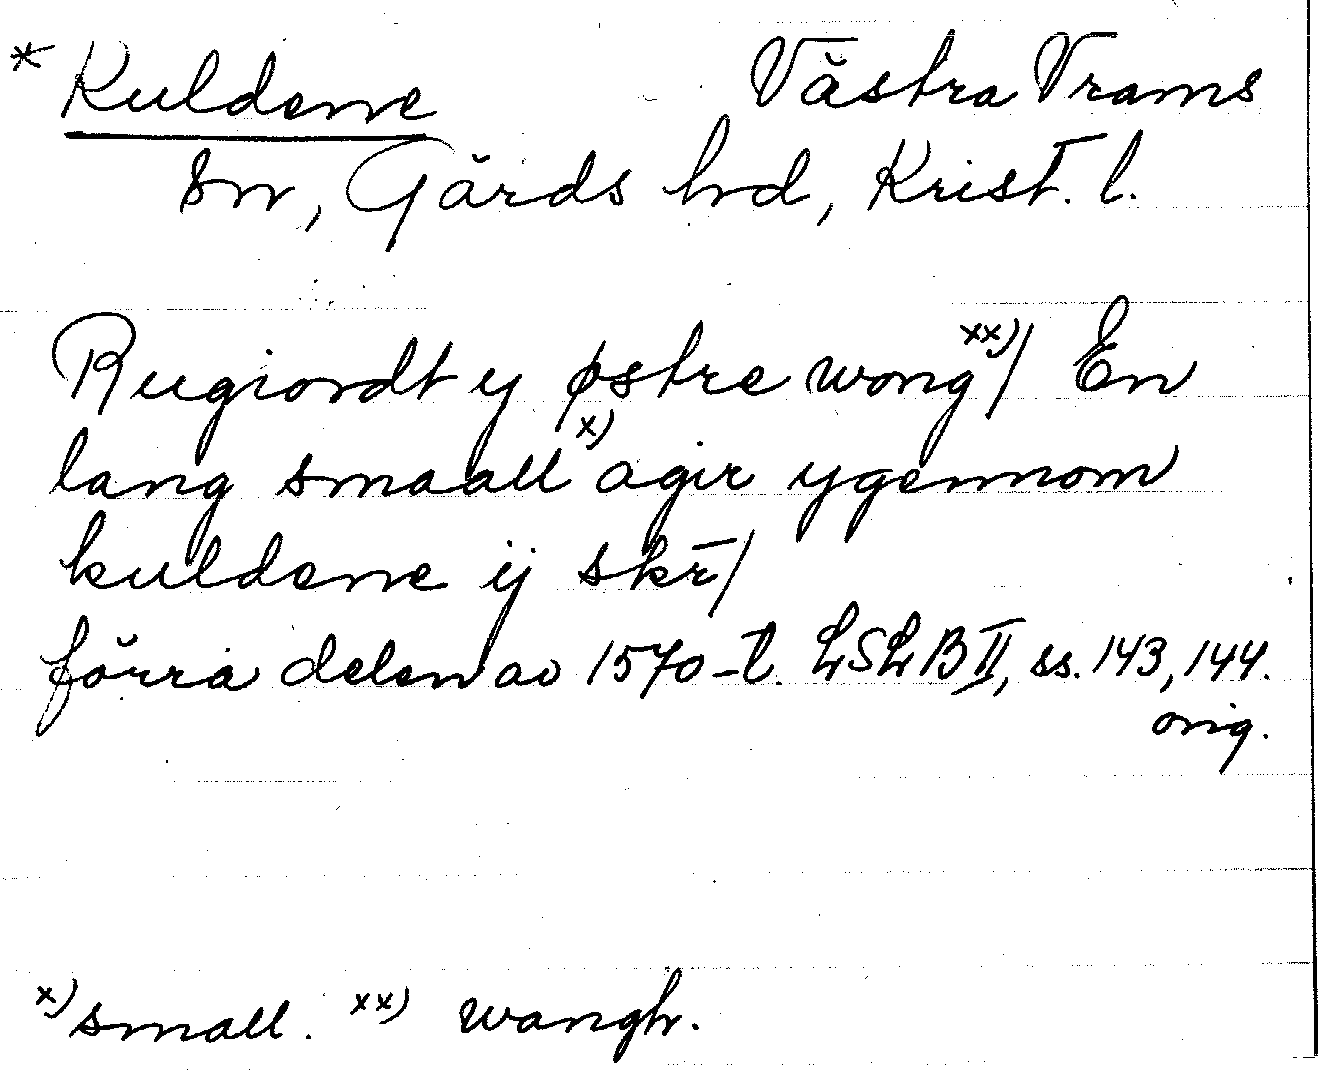 * Kuldene Västra Vrams
sn, Gärds hrd, Krist. l.
Rugiordt y østre wong xx)/ En
lang smaall x) agir ygennom
kuldene ij skr̄/
förra delen av 1570-t. LSLB II, ss. 143, 144.
orig.
x) small. xx) wangh.